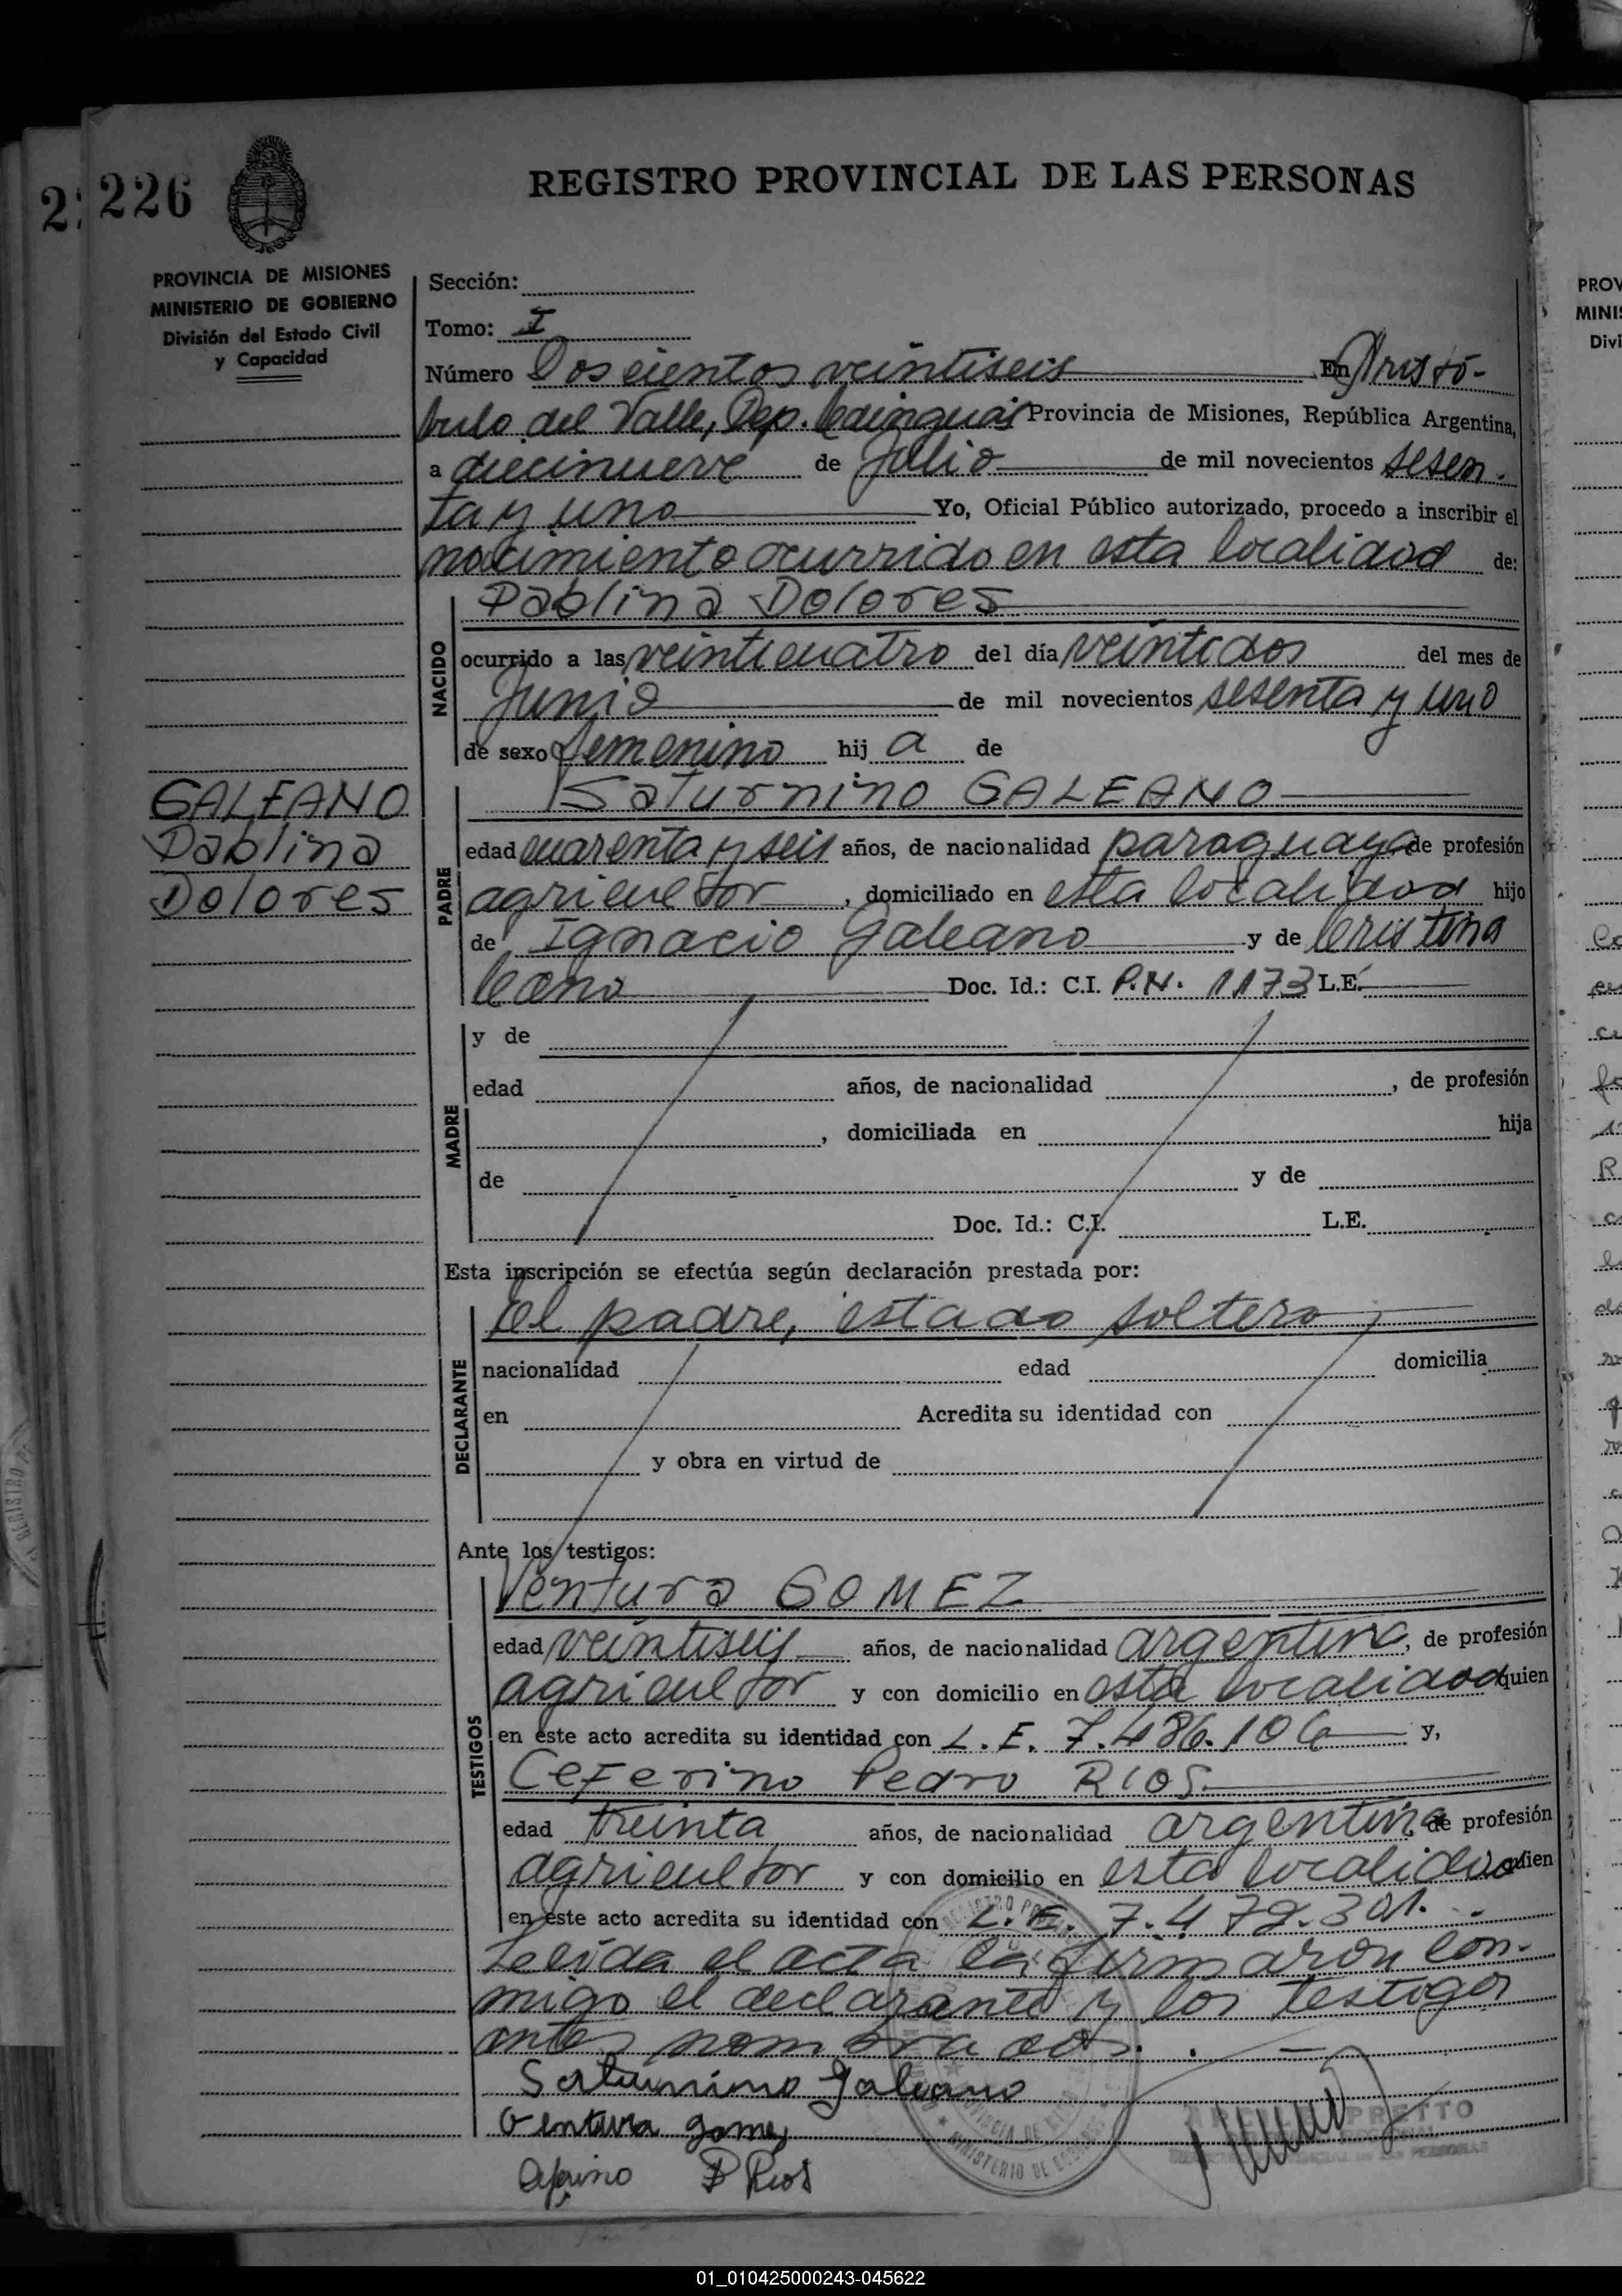 226
REGISTRO PROVINCIAL DE LAS PERSONAS
PROVINCIA DE MISIONES
MINISTERIO DE GOBIERNO
División del Estado Civil
y Capacidad
Sección:
Tomo: I
Número Doscientos veintiseis En Aristó-
bulo del Valle, Dep. Cainguás Provincia de Misiones, República Argentina,
a diecinueve de Julio de mil novecientos sesen-
ta y uno Yo, Oficial Público autorizado, procedo a inscribir el
nacimiento ocurrido en esta localidad de:
NACIDO
Pablina Dolores
ocurrido a las veinticuatro del día veintidos del mes de
Junio de mil novecientos sesenta y uno
de sexo femenino hij a de
GALEANO
Pablina
Dolores
PADRE
Saturnino GALEANO
edad cuarenta y seis años, de nacionalidad paraguaya de profesión
agricultor, domiciliado en esta localidad hijo
de Ignacio Galeano y de Cristina
Cano Doc. Id.: C.I. P.N. 1173 L.E.
MADRE
y de
edad años, de nacionalidad , de profesión
, domiciliada en hija
de y de
Doc. Id.: C.I. L.E.
Esta inscripción se efectúa según declaración prestada por:
DECLARANTE
el padre, estado soltero
nacionalidad edad domicilia
en Acredita su identidad con
y obra en virtud de
Ante los testigos:
TESTIGOS
Ventura GOMEZ
edad veintiseis años, de nacionalidad argentina, de profesión
agricultor y con domicilio en esta localidad quien
en este acto acredita su identidad con L.E. 7.486.106 y,
Ceferino Pedro RIOS
edad treinta años, de nacionalidad argentina de profesión
agricultor y con domicilio en esta localidad quien
en este acto acredita su identidad con L.E. 7.472.301.
Leída el acta la firmaron con-
migo el declarante y los testigos
antes nombrados.
Saturnino Galeano
Ventura gomez
Ceferino P Rios
PRETTO
MINISTERIO DE
01_010425000243-045622